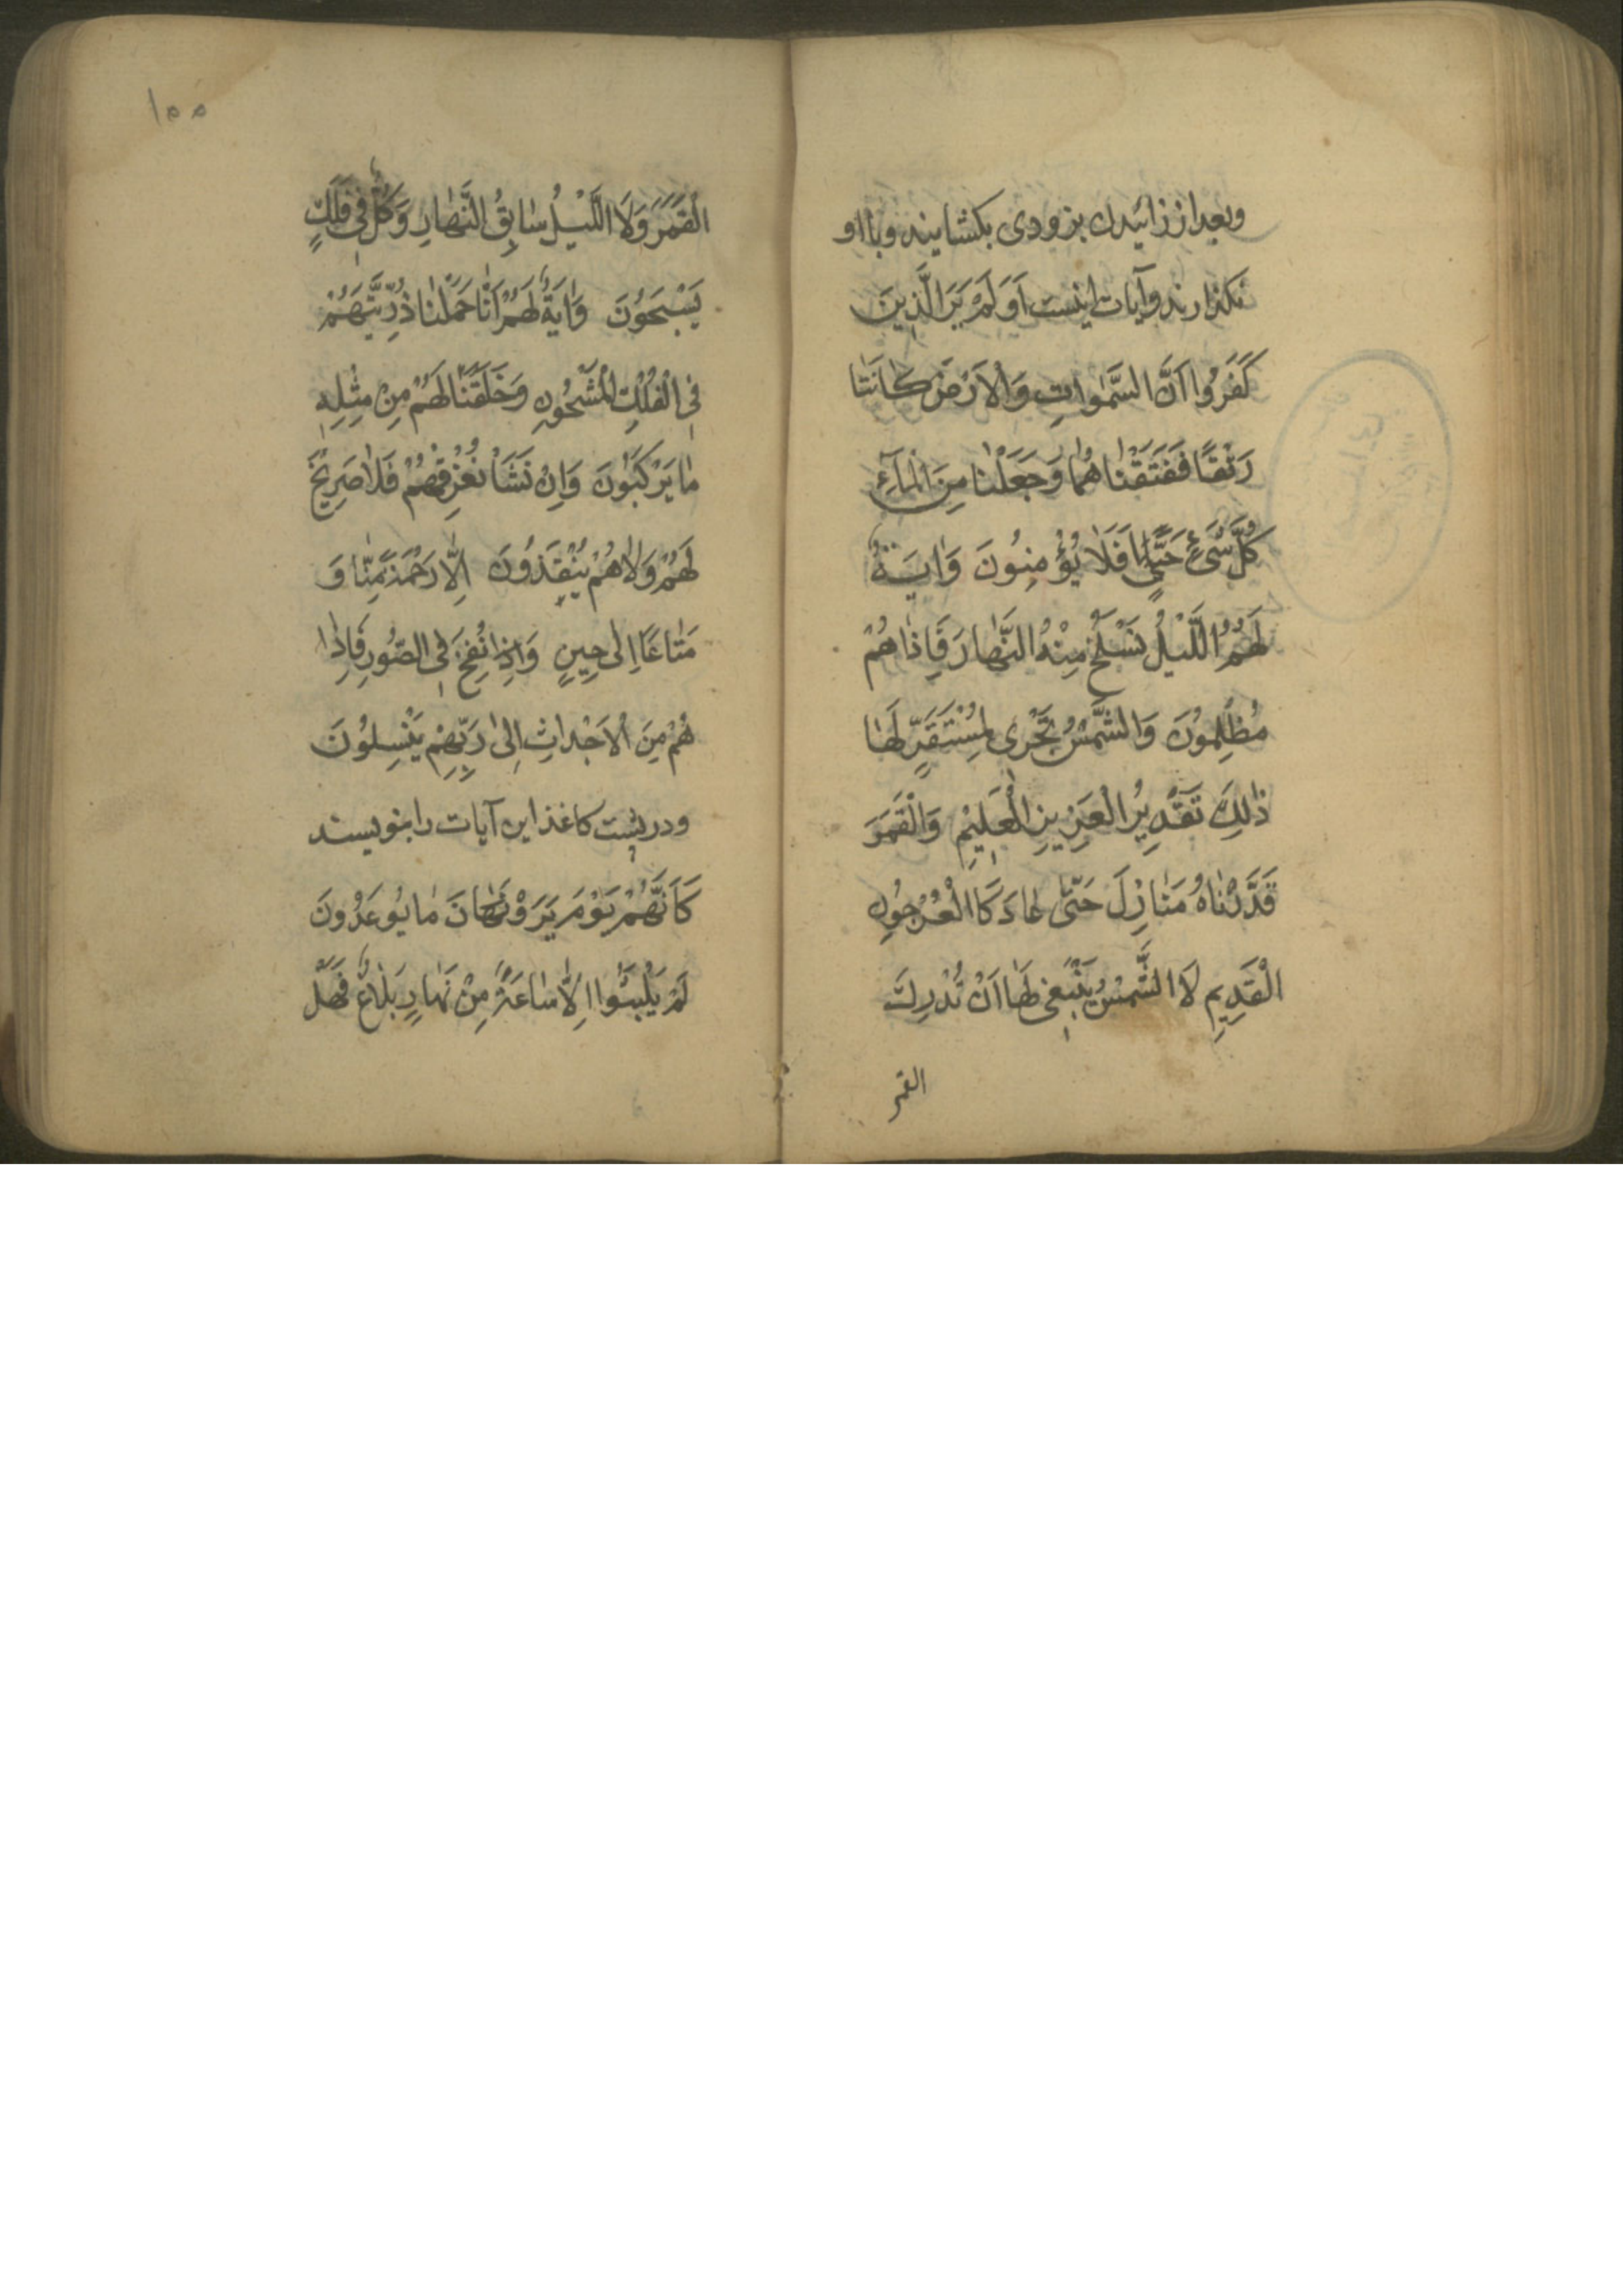 وبعد از زائیدن بزودی بکشایند و با او
نکذارند و آیات اینست اَوَلَمْ یَرَ الَّذِینَ
کَفَرُوا اَنَّ السَّمٰوٰاتِ وَالْاَرْضَ کٰانَتٰا
رَتْقًا فَفَتَقْنٰاهُمٰا وَجَعَلْنٰا مِنَ الْمٰآءِ
کُلَّ شَیْءٍ حَیٍّ اَفَلٰا یُؤْمِنُونَ وَاٰیَةٌ
لَهُمُ اللَّیْلُ نَسْلَخُ مِنْهُ النَّهٰارَ فَاِذٰا هُمْ
مُظْلِمُونَ وَالشَّمْسُ تَجْرٰی لِمُسْتَقَرٍّ لَهٰا
ذٰلِکَ تَقْدِیرُ الْعَزِیزِ الْعَلِیْمِ وَالْقَمَرَ
قَدَّرْنٰاهُ مَنٰازِلَ حَتّٰی عٰادَ کَالْعُرْجُونِ
الْقَدِیمِ لَا الشَّمْسُ یَنْبَغِی لَهٰا اَنْ تُدْرِکَ
القمر
۱۵۵
الْقَمَرَ وَلَا اللَّیْلُ سٰابِقُ النَّهٰارِ وَکُلٌّ فِی فَلَکٍ
یَسْبَحُونَ وَاٰیَةٌ لَهُمْ اَنّٰا حَمَلْنٰا ذُرِّیَّتَهُمْ
فِی الْفُلْکِ الْمَشْحُونِ وَخَلَقْنٰا لَهُمْ مِنْ مِثْلِهِ
مٰا یَرْکَبُونَ وَاِنْ نَشَأْ نُغْرِقْهُمْ فَلٰا صَرِیخَ
لَهُمْ وَلٰا هُمْ یُنْقَذُونَ اِلّٰا رَحْمَةً مِنّٰا وَ
مَتٰاعًا اِلٰی حِینٍ وَاِذٰا نُفِخَ فِی الصُّورِ فَاِذٰا
هُمْ مِنَ الْاَجْدٰاثِ اِلٰی رَبِّهِمْ یَنْسِلُونَ
و در پشت کاغذ این آیات را بنویسند
کَاَنَّهُمْ یَوْمَ یَرَوْنَهٰا نَ مٰا یُوعَدُونَ
لَمْ یَلْبَثُوا اِلّٰا سٰاعَةً مِنْ نَهٰارٍ بَلٰاغٌ فَهَلْ